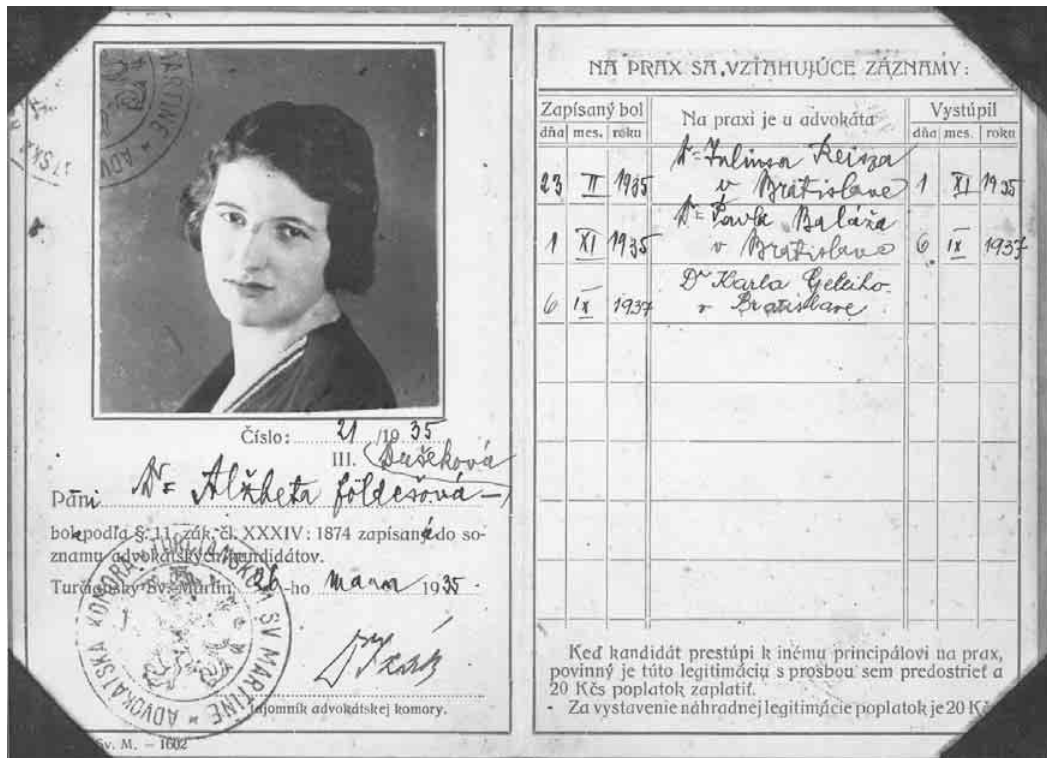 Číslo: 21 /19 35
III. Dušeková
Páni Dr Alžbeta Földešová
bola podľa §. 11. zák. čl. XXXIV: 1874 zapísaná do so-
znamu advokátskych kandidátov.
Turčiansky Sv. Martin, 26 -ho marca 1935.
tajomník advokátskej komory.
ADVOKÁTSKA KOMORA V TURČIANSKOM SV MARTINE
Sv. M. — 1602
NA PRAX SA VZŤAHUJÚCE ZÁZNAMY:
Zapísaný bol Na praxi je u advokáta Vystúpil
dňa mes. roku dňa mes. roku
Dr Juliusa Reisza
23 II 1935 v Bratislave 1 XI 1935
Dr Pavla Baláža
1 XI 1935 v Bratislave 6 IX 1937
Dr Karla Geleiho
6 IX 1937 v Bratislave
Keď kandidát prestúpi k inému principálovi na prax,
povinný je túto legitimáciu s prosbou sem predostrieť a
20 Kčs poplatok zaplatiť.
- Za vystavenie náhradnej legitimácie poplatok je 20 Kč